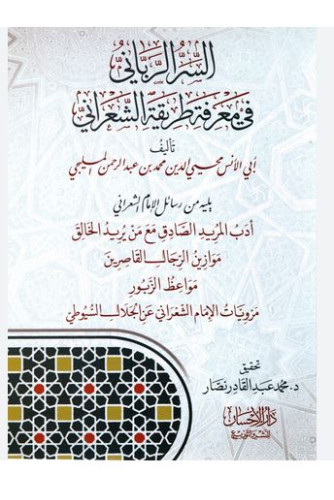 السر الرباني
في معرفة طريقة الشعراني
تأليف
أبي الأنس محيي الدين محمد بن عبد الرحمن المليجي
يليه من رسائل الإمام الشعراني
أدب المريد الصادق مع من يريد الخالق
موازين الرجال القاصرين
مواعظ الزبور
مرويات الإمام الشعراني عن الجلال السيوطي
تحقيق
د. محمد عبد القادر نصار
دار الإحسان
للنشر والتوزيع